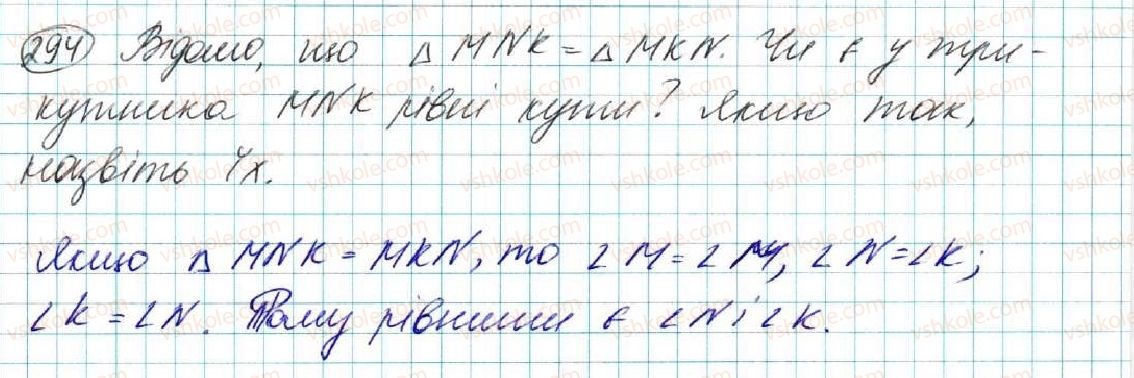 294 Відомо, що △ MNK = △ MKN. Чи є у три-
кутника MNK рівні кути? Якщо так,
назвіть їх.
Якщо △ MNK = MKN, то ∠M = ∠M, ∠N = ∠K;
∠K = ∠N. Тому рівними є ∠N і ∠K.